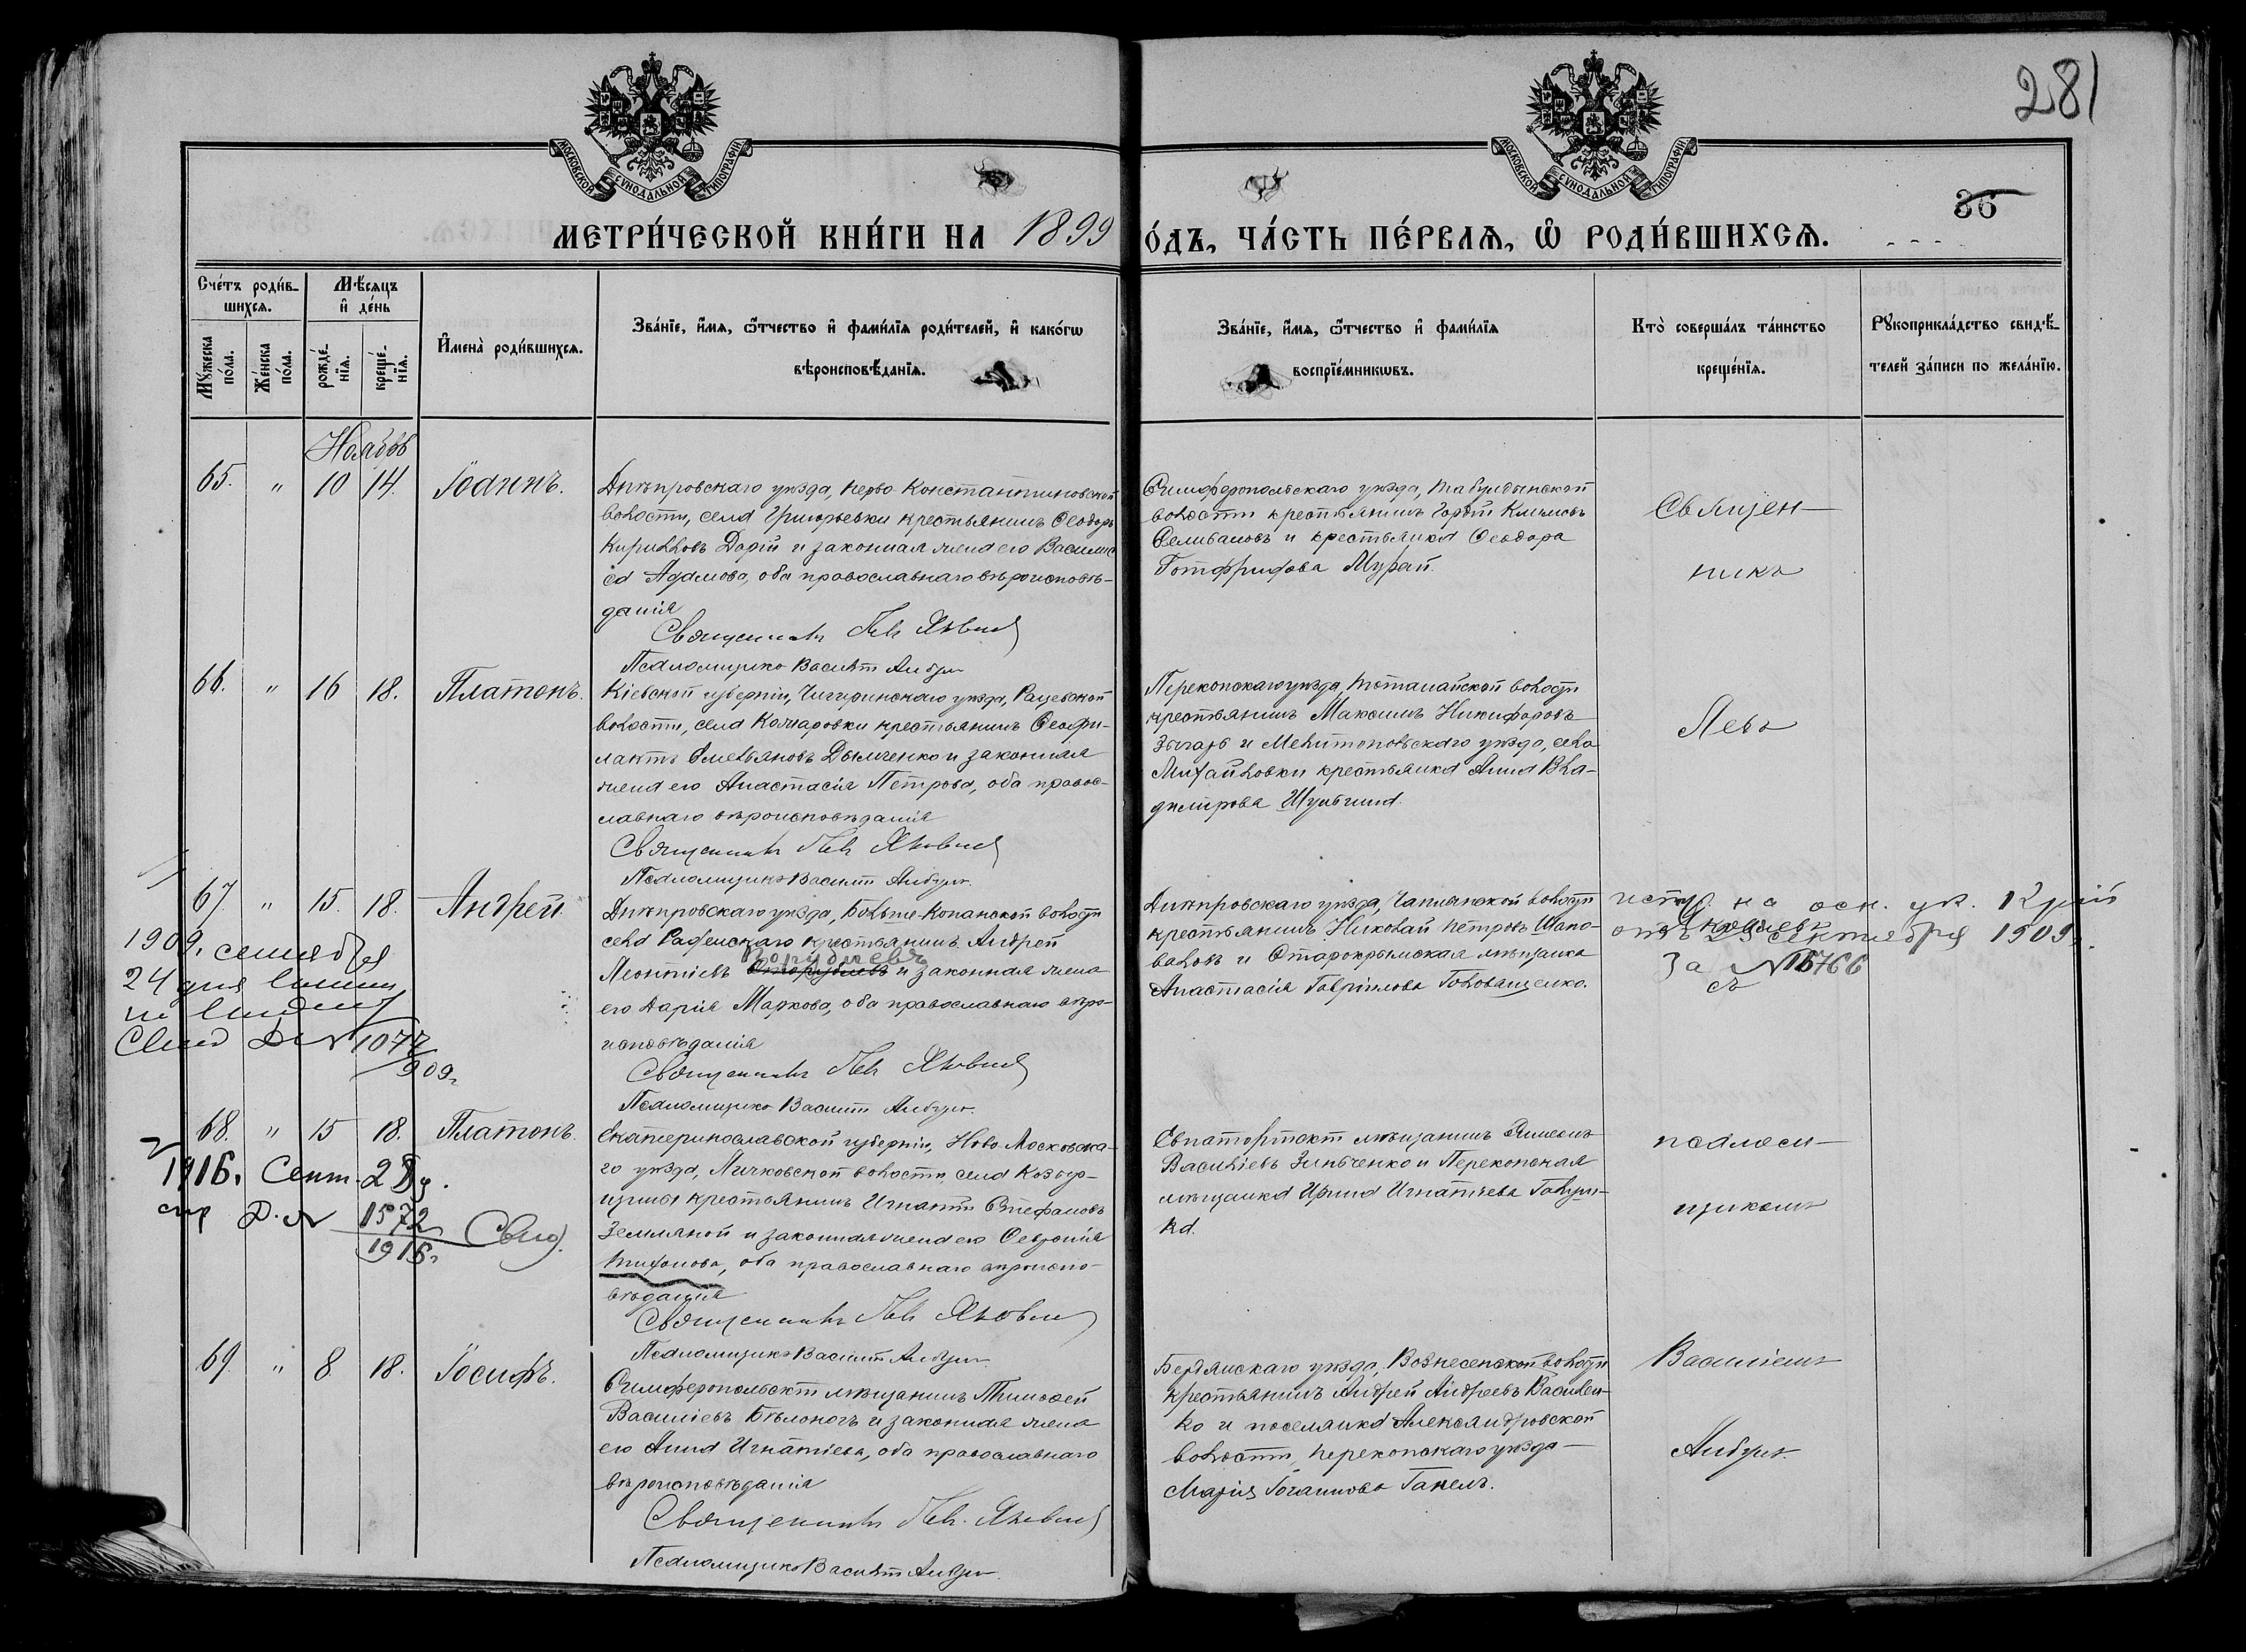 281
36
МОСКОВСКОЙ СУНОДАЛЬНОЙ ТИПОГРАФІИ
МОСКОВСКОЙ СУНОДАЛЬНОЙ ТИПОГРАФІИ
МЕТРИ́ЧЕСКОЙ КНИ́ГИ НА 1899
О́ДЪ, ЧА́СТЬ ПЕ́РВАѦ, Ѡ҆ РОДИ́ВШИХСѦ.
Сче́тъ роди́в-
шихсѧ.
Мꙋ́жеска по́ла.
Же́нска по́ла.
Мѣ́сѧцъ
и҆ де́нь
рожде́-
нїѧ.
креще́-
нїѧ.
И҆мена̀ роди́вшихсѧ.
Зва́нїе, и҆́мѧ, ѻ҆́тчество и҆ фами́лїѧ роди́телей, и҆ како́гѡ
вѣроисповѣ́данїѧ.
Зва́нїе, и҆́мѧ, ѻ҆́тчество и҆ фами́лїѧ
воспрїе́мникѡвъ.
Кто̀ соверша́лъ та́инство
креще́нїѧ.
Рꙋкоприкла́дство свидѣ́-
телей за́писи по жела́нїю.
Ноябрь
65. " 10 14. Іоаннъ.
Днѣпровскаго уѣзда, Перво-Константиновской
волости, села Григорьевки крестьянинъ Ѳеодоръ
Кирилловъ Дорій и законная жена его Василис-
са Адамова, оба православнаго вѣроисповѣ-
данія
Священникъ Левъ Яковлевъ
Псаломщикъ Василій
Симферопольскаго уѣзда, Табулдынской
волости крестьянинъ Гордій Климовъ
Селивановъ и крестьянка Ѳеодора
Готфридова Мурай.
Священ-
никъ
66. " 16 18. Платонъ.
Кіевской губерніи, Чигиринскаго уѣзда, Рацевской
волости, села Комаровки крестьянинъ Ѳеофи-
лактъ Емельяновъ Дымченко и законная
жена его Анастасія Петрова, оба правос-
лавнаго вѣроисповѣданія
Священникъ Левъ Яковлевъ
Псаломщикъ Василій
Перекопскаго уѣзда, Тотанайской волости
крестьянинъ Максимъ Никифоровъ
Зыгарь и Мелитопольскаго уѣзда, села
Михайловки крестьянка Анна Вла-
димірова Шульгина.
Левъ
67. " 15. 18. Андрей.
1909. сентября
24 дня
1077
909г.
Днѣпровскаго уѣзда, Больше-Копанской волости
села Раденскаго крестьянинъ Андрей
Леонтіевъ и законная жена
его Дарія Маркова, оба православнаго вѣро-
исповѣданія
Священникъ Левъ Яковлевъ
Псаломщикъ Василій
Днѣпровскаго уѣзда, Чаплинской волости
крестьянинъ Николай Петровъ Шапо-
валовъ и Старокрымская мѣщанка
Анастасія Гавріилова Голованенко.
на осн. ук.
отъ 23 сентября 1909г.
За № 15766
68. " 15 18. Платонъ.
1916. Сент.
Д. № 1572
1916г.
Екатеринославской губерніи, Ново-Московска-
го уѣзда, Личковской волости села Козыр-
щины крестьянинъ Игнатій Стефановъ
Земляной и законная жена его Ѳевронія
Тихонова, оба православнаго вѣроиспо-
вѣданія
Священникъ Левъ Яковлевъ
Псаломщикъ Василій
Евпаторійскій мѣщанинъ Симеонъ
Василіевъ Зинченко и Перекопская
мѣщанка Ирина Игнатіева Гаври-
ка.
псалом-
щикомъ
69. " 8. 18. Іосифъ.
Симферопольскій мѣщанинъ Тимоѳей
Василіевъ Бѣлоногъ и законная жена
его Анна Игнатіева, оба православнаго
вѣроисповѣданія
Священникъ Левъ Яковлевъ
Псаломщикъ Василій
Бердянскаго уѣзда, Вознесенской волости
крестьянинъ Андрей Андреевъ Василен-
ко и поселянка Александровской
волости, Перекопскаго уѣзда
Марія Іоганнова Гакель.
Василіемъ